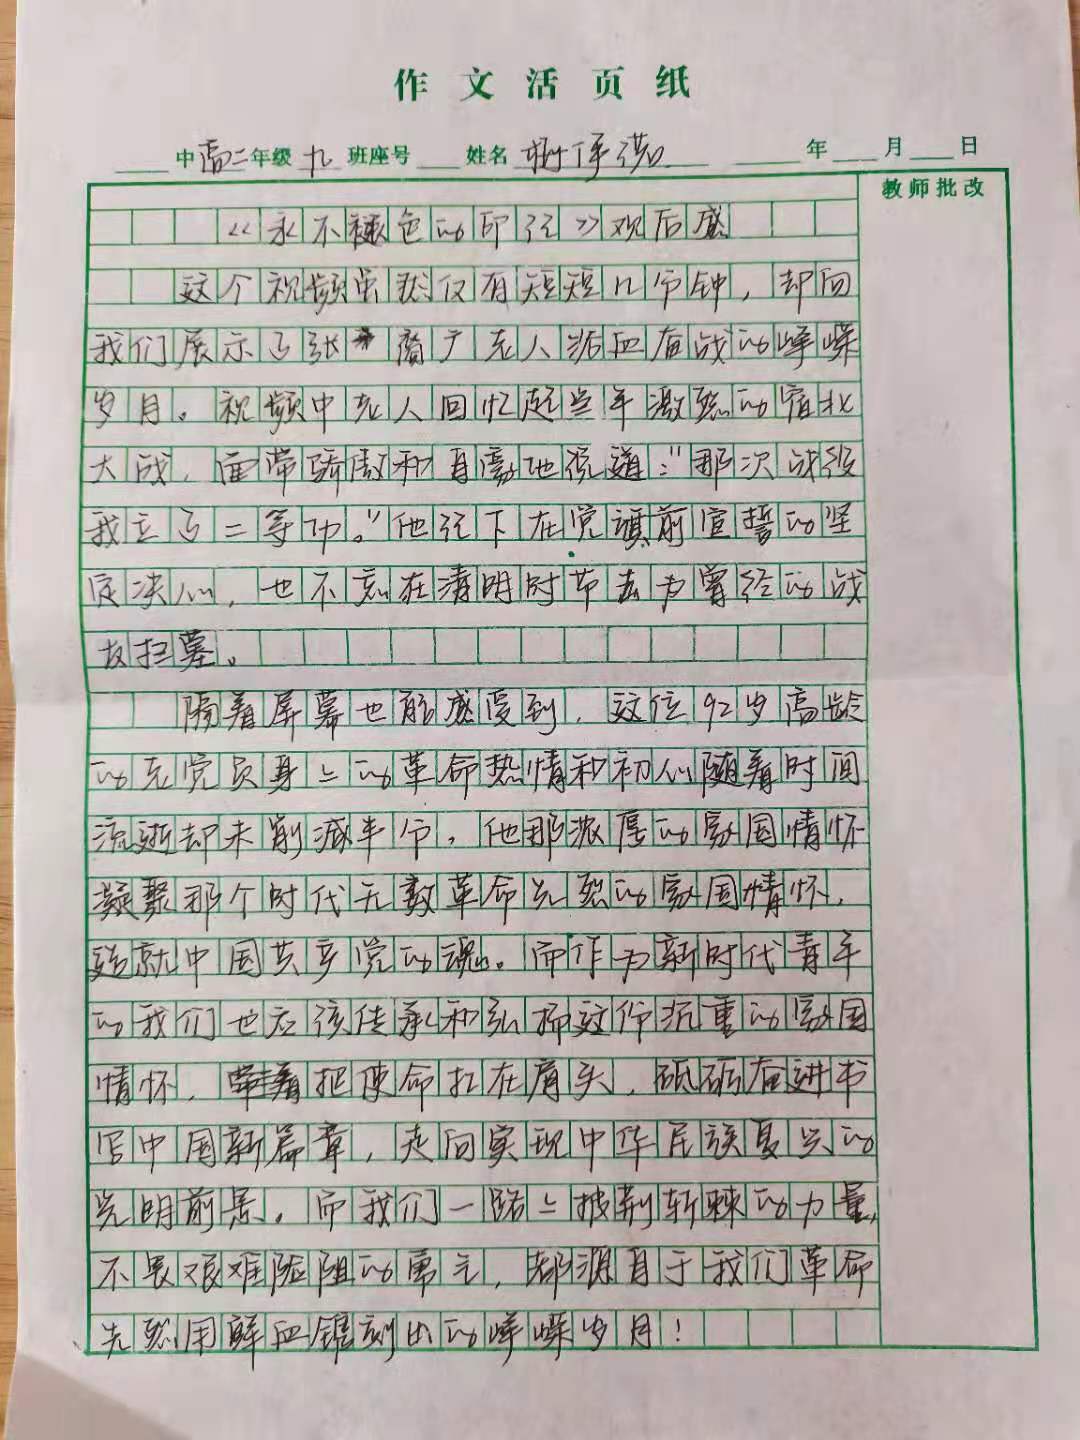 作文活页纸
中高二年级 九 班座号 姓名 年 月 日
教师批改
《永不褪色的印记》观后感
这个视频虽然仅有短短几分钟，却向
我们展示了张广老人浴血奋战的峥嵘
岁月。视频中老人回忆起当年激烈的宿北
大战，面带骄傲和自豪地说道："那次战役
我立了二等功。"他记下在党旗前宣誓的坚
定决心，也不忘在清明时节去为曾经的战
友扫墓。
隔着屏幕也能感受到，这位92岁高龄
的老党员身上的革命热情和初心随着时间
流逝却未削减半分，他那浓厚的家国情怀
凝聚那个时代无数革命先烈的家国情怀，
造就中国共产党的魂。而作为新时代青年
的我们也应该传承和弘扬这份沉重的家国
情怀，牵着把使命扛在肩头，砥砺奋进书
写中国新篇章，走向实现中华民族复兴的
光明前景。而我们一路上披荆斩棘的力量，
不畏艰难险阻的勇气，都源自于我们革命
先烈用鲜血镌刻出的峥嵘岁月！